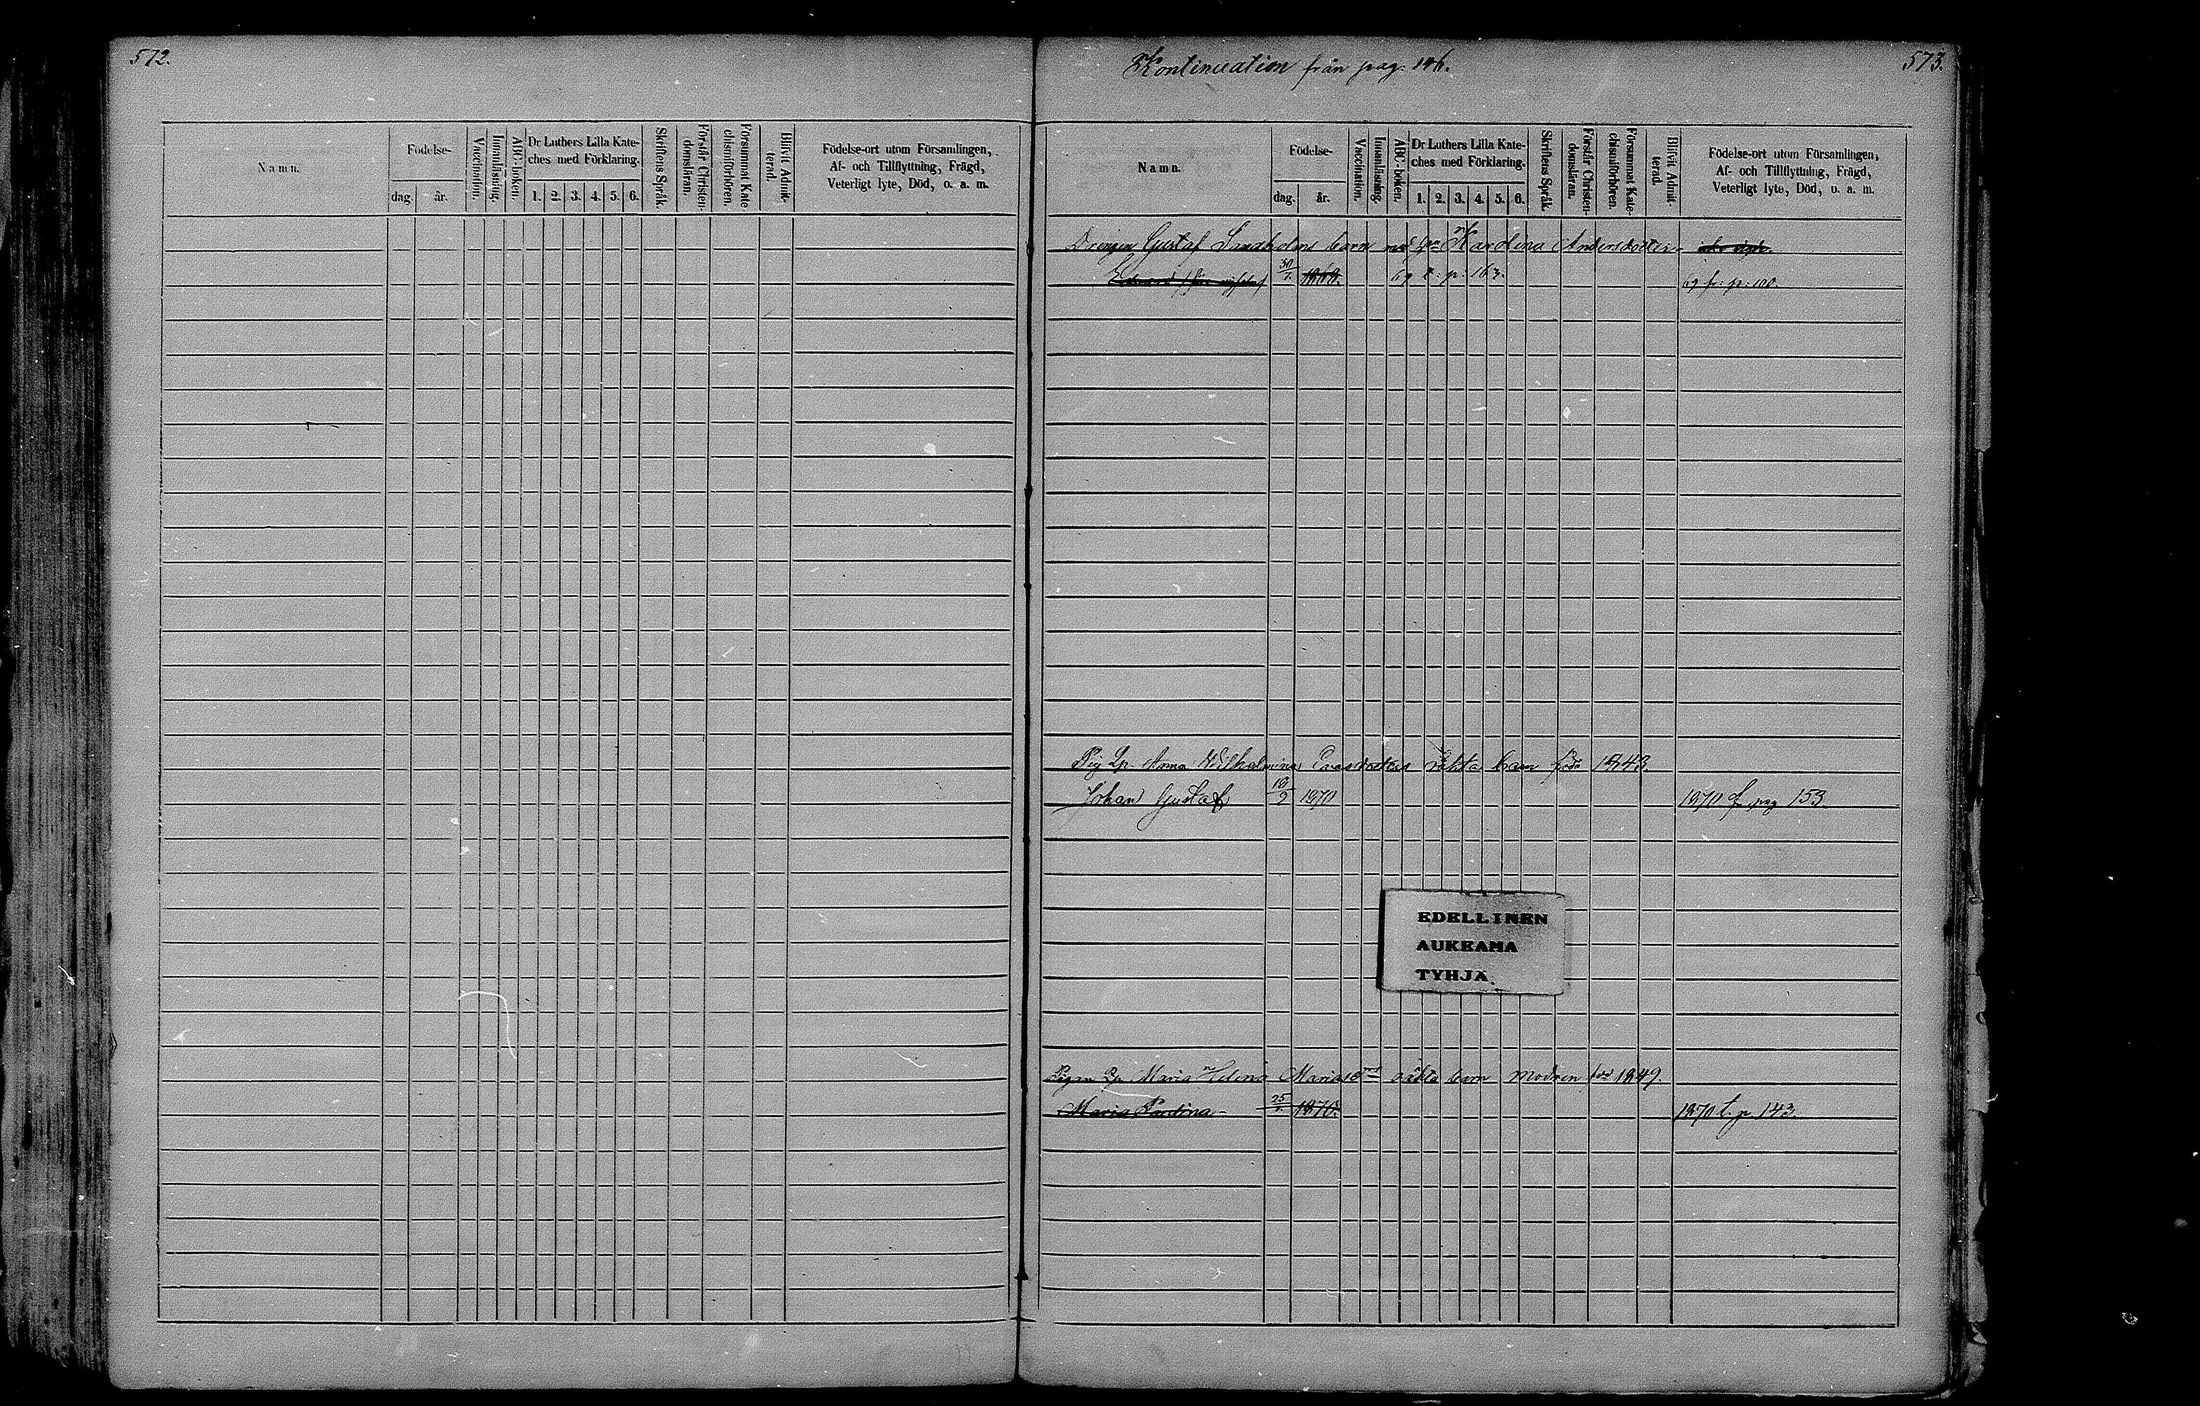 572.
Namn.
Födelse-
dag
år.
Vaccination.
Innanläsning.
ABC-boken.
Dr Luthers Lilla Kate-
ches med Förklaring.
1. 2. 3. 4. 5. 6.
Skriftens Språk.
Förstår Christen-
domsläran.
Försummat Kate-
chismiförhören.
Blifvit Admit-
terad.
Födelse-ort utom Församlingen,
Af- och Tillflyttning, Frägd,
Veterligt lyte, Död, o. a. m.
Kontinuation från pag: 146.
573.
Namn.
Födelse-
dag.
år.
Vaccination.
Innanläsning.
ABC-boken.
Dr Luthers Lilla Kate-
ches med Förklaring.
1. 2. 3. 4. 5. 6.
Skriftens Språk.
Förstår Christen-
domsläran.
Försummat Kate-
chismiförhören.
Blifvit Admit-
terad.
Födelse-ort utom Församlingen,
Af- och Tillflyttning, Frägd,
Veterligt lyte, Död, o. a. m.
Drengen Gustaf barn med Karolina Andersdotter
Edvard 1868. 69 t: p: 163. 69 fr: p: 100.
Pig Lp. Anna Wilhelmina oäkta barn född 1843.
Johan Gustaf 10/9 1870 1870 f pag 153
Pigan Lp. Maria Helena oäkta barn modren född 1849.
Maria 25/ 1870. 1870 t. p. 143.
EDELLINEN
AUKEAMA
TYHJÄ.